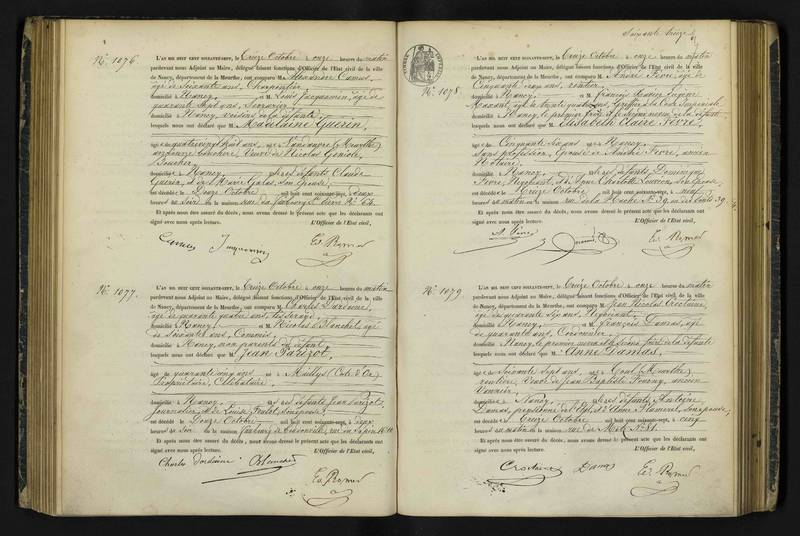 Nº 1076
L'AN MIL HUIT CENT SOIXANTE-SEPT, le treize Octobre à onze heures du matin
pardevant nous Adjoint au Maire, délégué faisant fonctions d'Officier de l'Etat civil de la ville
de Nancy, département de la Meurthe, ont comparu M. Alexandre Camus,
âgé de soixante ans, Charpentier,
domicilié à Nancy, et M. Louis Jacquemin, âgé de
quarante sept ans, Serrurier,
domicilié à Nancy, voisins de la défunte,
lesquels nous ont déclaré que M. Madelaine Guerin,
âgée de quatre vingt huit ans, née à Vandoeuvre (Meurthe)
ancienne Bouchère, Veuve de Nicolas
Boucher,
domiciliée à Nancy, défunts Claude
Guerin, et de Marie son épouse,
est décédée le Douze Octobre mil huit cent soixante-sept, à deux
heures du soir en la maison rue du faubourg St Pierre Nº 64.
Et après nous être assuré du décès, nous avons dressé le présent acte que les déclarants ont
signé avec nous après lecture. L'Officier de l'Etat civil,
Camus Jacquemin
Nº 1077.
L'AN MIL HUIT CENT SOIXANTE-SEPT, le treize Octobre à onze heures du matin
pardevant nous Adjoint au Maire, délégué faisant fonctions d'Officier de l'Etat civil de la ville
de Nancy, département de la Meurthe, ont comparu M. Charles
âgé de quarante quatre ans,
domicilié à Nancy, et M. Nicolas Blanchet, âgé
de soixante ans, Commis,
domicilié à Nancy, non parents du défunt,
lesquels nous ont déclaré que M. Jean Parizot,
âgé de quarante cinq ans né à (Côte d'Or)
Propriétaire, Célibataire,
domicilié à Nancy, défunts Jean Parizot,
journalier, et de Louise son épouse,
est décédé le Douze Octobre mil huit cent soixante-sept, à
heures du soir en la maison faubourg rue du
Et après nous être assuré du décès, nous avons dressé le présent acte que les déclarants ont
signé avec nous après lecture. L'Officier de l'Etat civil,
Charles Blanchet
Soixante treize
Nº 1078.
L'AN MIL HUIT CENT SOIXANTE-SEPT, le treize Octobre à onze heures du matin
pardevant nous Adjoint au Maire, délégué faisant fonctions d'Officier de l'Etat civil de la ville
de Nancy, département de la Meurthe, ont comparu M. André Fevre, âgé de
Cinquante ans, rentier,
domicilié à Nancy, et M. François
âgé de trente quatre ans, Greffier à la Cour Impériale
domicilié à Nancy, le premier et le deuxième neveu de la défunte
lesquels nous ont déclaré que M. Elisabeth Claire Fevre,
âgée de Cinquante six ans née à Nancy,
sans profession, Epouse de André Fevre, ancien
Notaire,
domiciliée à Nancy, défunts Dominique
Fevre, Négociant, et de Charlotte son épouse,
est décédée le treize Octobre mil huit cent soixante-sept, à neuf
heures du matin en la maison rue de la Nº 39
Et après nous être assuré du décès, nous avons dressé le présent acte que les déclarants ont
signé avec nous après lecture. L'Officier de l'Etat civil,
A. Fevre
Nº 1079
L'AN MIL HUIT CENT SOIXANTE-SEPT, le treize Octobre à onze heures du matin
pardevant nous Adjoint au Maire, délégué faisant fonctions d'Officier de l'Etat civil de la ville
de Nancy, département de la Meurthe, ont comparu M. Jean Nicolas Croctaine,
âgé de quarante six ans, Négociant,
domicilié à Nancy, et M. François Damas, âgé
de quarante ans, Cordonnier,
domicilié à Nancy, le premier neveu et le second frère de la défunte
lesquels nous ont déclaré que M. Anne Damas,
âgée de soixante sept ans née à (Meurthe)
rentière, Veuve de Jean Baptiste ancien
Vannier,
domiciliée à Nancy, défunts Antoine
Damas, et d'Anne son épouse;
est décédée le treize Octobre mil huit cent soixante-sept, à cinq
heures du matin en la maison rue de Metz Nº 81.
Et après nous être assuré du décès, nous avons dressé le présent acte que les déclarants ont
signé avec nous après lecture. L'Officier de l'Etat civil,
Croctaine Damas